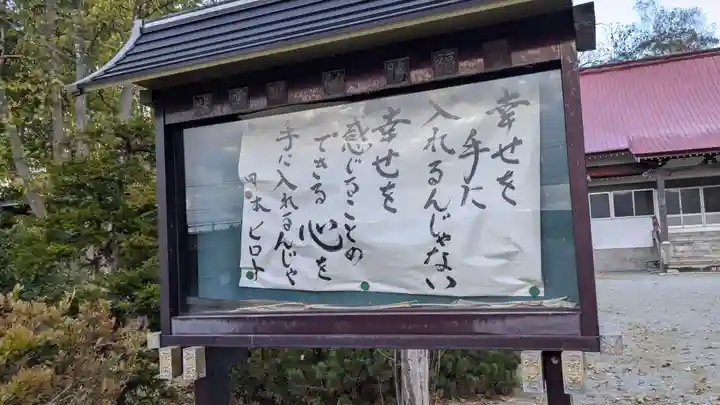 幸せを
手に
入れるんじゃない
幸せを
感じることの
できる心を
手に入れるんじゃ
甲本ヒロト